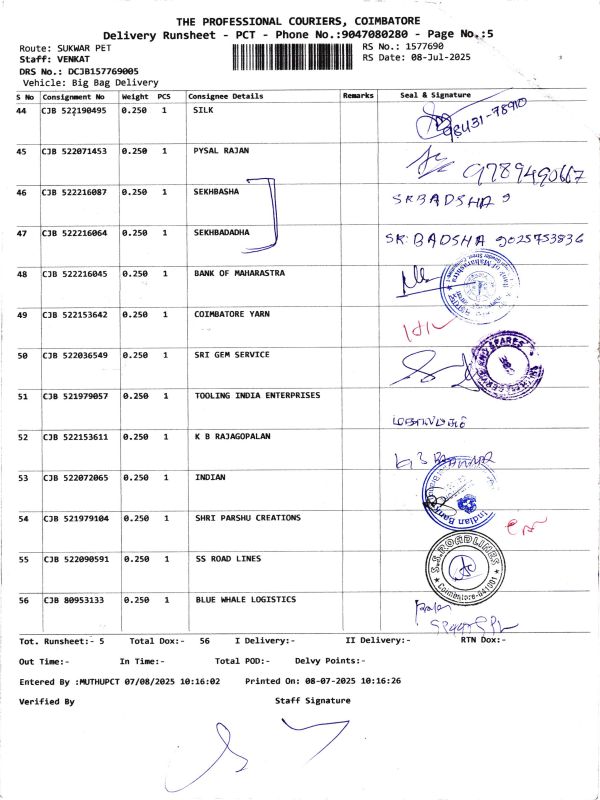 THE PROFESSIONAL COURIERS, COIMBATORE
Delivery Runsheet - PCT - Phone No.:9047080280 - Page No.:5
Route: SUKWAR PET RS No.: 1577690
Staff: VENKAT RS Date: 08-Jul-2025
DRS No.: DCJB157769005
Vehicle: Big Bag Delivery
S No Consignment No Weight PCS Consignee Details Remarks Seal & Signature
44 CJB 522190495 0.250 1 SILK 98431-78910
45 CJB 522071453 0.250 1 PYSAL RAJAN 9789490667
46 CJB 522216087 0.250 1 SEKHBASHA SK BADSHA 9
47 CJB 522216064 0.250 1 SEKHBADADHA SK. BADSHA 9025753836
48 CJB 522216045 0.250 1 BANK OF MAHARASTRA
49 CJB 522153642 0.250 1 COIMBATORE YARN
50 CJB 522036549 0.250 1 SRI GEM SERVICE
51 CJB 521979057 0.250 1 TOOLING INDIA ENTERPRISES
52 CJB 522153611 0.250 1 K B RAJAGOPALAN
53 CJB 522072065 0.250 1 INDIAN Indian Bank
54 CJB 521979104 0.250 1 SHRI PARSHU CREATIONS
55 CJB 522090591 0.250 1 SS ROAD LINES S.S.ROADLINES
56 CJB 80953133 0.250 1 BLUE WHALE LOGISTICS
Tot. Runsheet:- 5 Total Dox:- 56 I Delivery:- II Delivery:- RTN Dox:-
Out Time:- In Time:- Total POD:- Delvy Points:-
Entered By :MUTHUPCT 07/08/2025 10:16:02 Printed On: 08-07-2025 10:16:26
Verified By Staff Signature